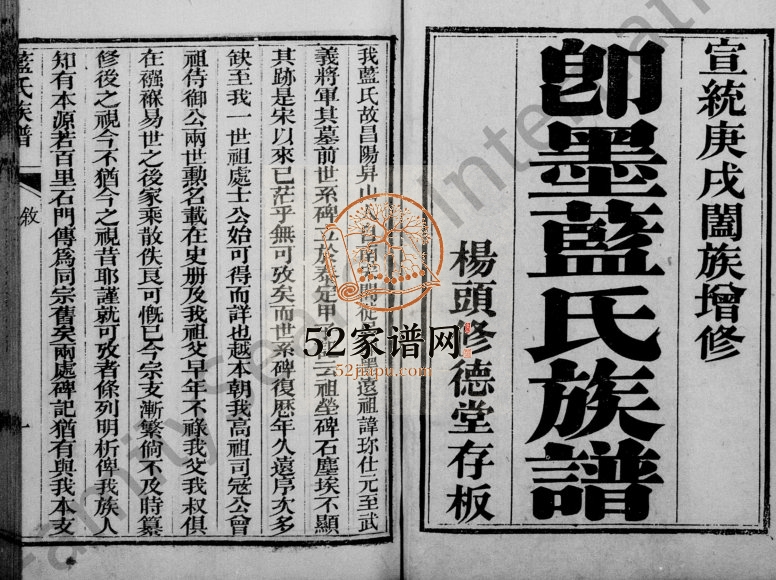 宣統庚戌闔族增修
卽墨藍氏族譜
楊頭修德堂存板
我藍氏故昌陽昇山
遠祖諱珎仕元至武
義將軍其墓前世系碑立於泰定甲
云祖塋碑石塵埃不顯
其跡是宋以來已茫乎無可攷矣而世系碑復歷年久遠序次多
缺至我一世祖處士公始可得而詳也越本朝我高祖司冦公曾
祖侍御公兩世勲名載在史册及我祖父早年不祿我父我叔俱
在襁褓易世之後家乘散佚良可慨已今宗支漸繁倘不及時纂
修後之視今不猶今之視昔耶謹就可攷者條列明析俾我族人
知有本源若百里石門傳為同宗舊矣兩處碑記猶有與我本支
藍氏族譜
敘
一
52家谱网
52jiapu.com
FamilySearch International